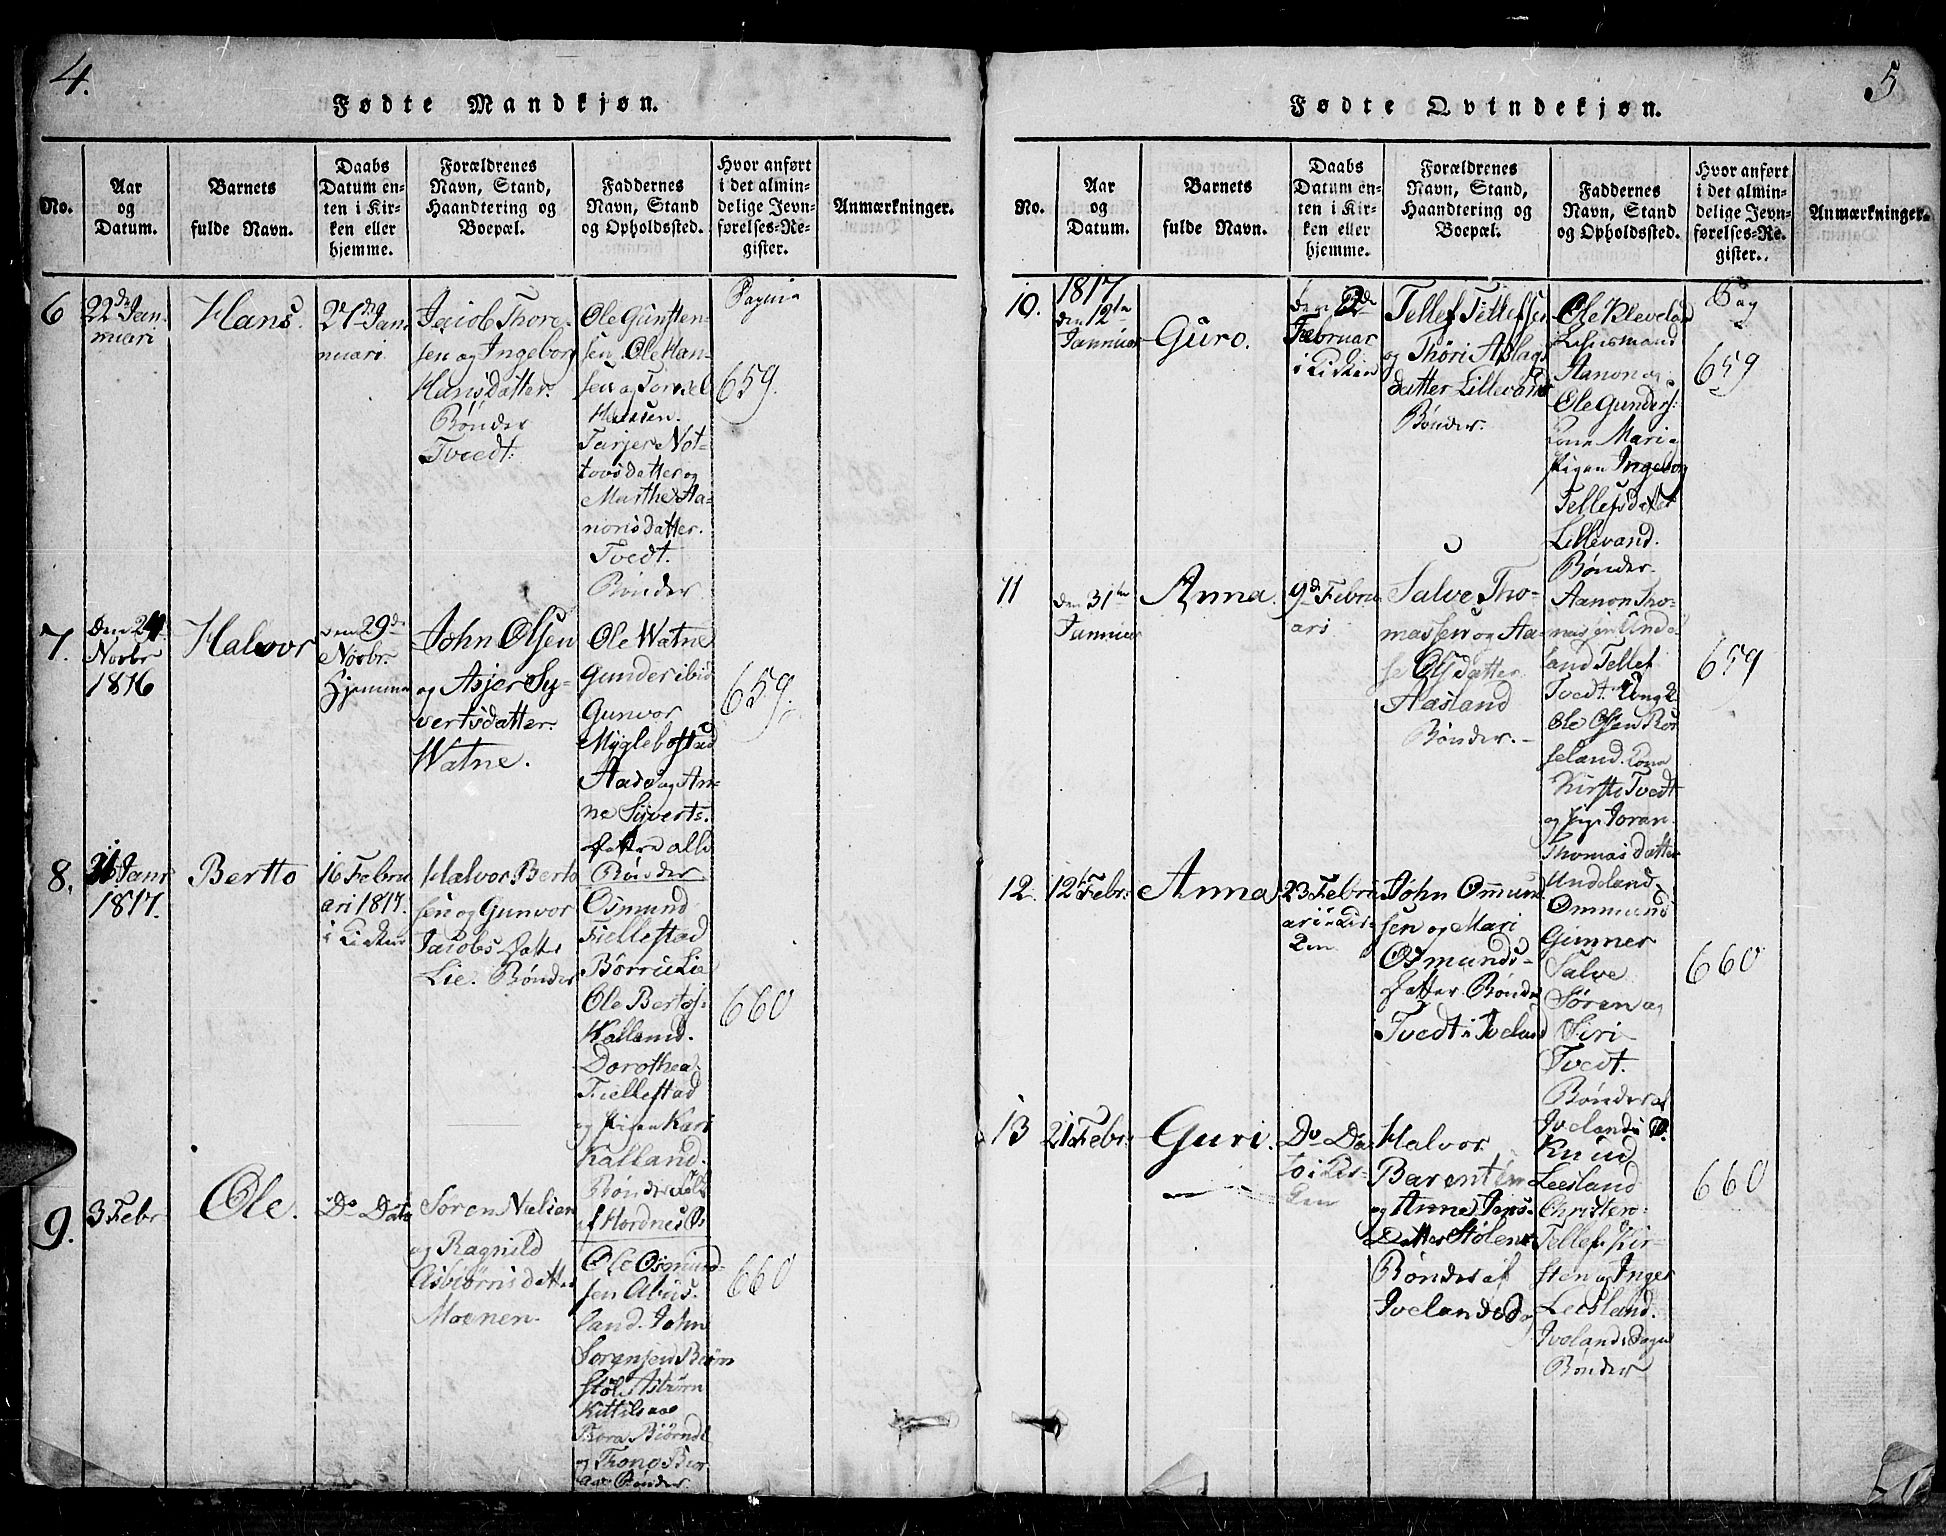 4.
Fødte Mandkjøn.
No.
Aar
og
Datum.
Barnets
fulde Navn.
Daabs
Datum en-
ten i Kir-
ken eller
hjemme.
Forældrenes
Navn, Stand,
Haandtering og
Boepæl.
Faddernes
Navn, Stand
og Opholdssted.
Hvor anført
i det almin-
delige Jevn-
førelses-Re-
gister.
Anmærkninger.
6
22de Jan-
nuari
Hans.
27de Jan-
nuari.
Jacob Thore-
sen og Ingeborg
Hansdatter.
Bønder
Tvedt.
Ole Gunsten-
sen, Ole Han-
sen og
Hansen.
Tarjer Not-
tovsdatter og
Marthe Aa-
nonsdatter.
Tvedt.
Bønder
Pagina
659.
7.
den 24
Novbr
1816
Halvor
den 29de
Novbr.
Hjemme
John Olsen
og Asjer Sy-
vertsdatter.
Watne.
Ole Watne
Gunder ibid
Gunvor
Myglebostad
Aade og An-
ne Syverts-
datter alle
Bønder
659.
8.
31 Janr
1817.
Bertto
16 Febru
ari 1817.
i Kirken
Halvor Berto
sen og Gunvor
Jacobs datter
Lie. Bønder
Osmund
Fiellestad
Børru Lie
Ole Bertos.
Kalland.
Dorothea
Fiellestad
og Pigen Kari
Kalland.
Bønder
af Hordnes
660
9.
3 Febr
Ole.
Do Dato
Søren Nielsen
og Ragnild
Asbiørnsdatter
Moenen.
Ole Osmund-
sen Abus-
land. John
Sorensen Biørn
Støle Asbiørn
Kittilsaae
Thora Biørnd
og Thone
Bønder
660
5
Fødte Qvindekjøn.
No.
Aar
og
Datum.
Barnets
fulde Navn.
Daabs
Datum en-
ten i Kir-
ken eller
hjemme.
Forældrenes
Navn, Stand,
Haandtering og
Boepæl.
Faddernes
Navn, Stand
og Opholdssted.
Hvor anført
i det almin-
delige Jevn-
førelses-Re-
gister.
Anmærkninger.
10.
1817
den 12te
Januar
Guro.
den 2de
Februar
i Kirken
Tellef Tellefsen
og Thöri Aslags
datter Lillevand
Bønder.
Ole Kleveland
Lehnsmand
Aanon og
Ole Gunders:
Kone Mari
Pigen Ingeborg
Tellefsdatter
Lillevand.
Bønder.
Pag
659
11
den 31te
Januar
Anna.
9de Febru
ari
Salve Tho-
massen og Aa-
se Olsdatter
Aasland
Bønder.
Aanon Tho-
massen Unde-
land Tellef
Tvedt. Ung K
Ole Olsen Ros
seland. Kone
Kirsti Tvedt
og Pige Joran
Thomasdatter
Undeland
659
12.
12te Febr:
Anna
23 Febru
ari i Kir-
ken
John Ommund
sen og Mari
Osmunds-
datter Bønder
Tvedt i Iveland
Ommund
Gimner
Salve
Søren og
Siri
Tvedt.
Bønder af
Ivelands
660
13
21 Febr:
Guri.
Do Da-
to i Kir-
ken
Halvor
Barentsen
og Anne Jens-
Datter Stølen
Bønder af
Ivelands Sog
Knud
Leesland
Christen
Tellef. Kir-
sten og Inger
Leesland.
Ivelands Sogn
Bønder
660